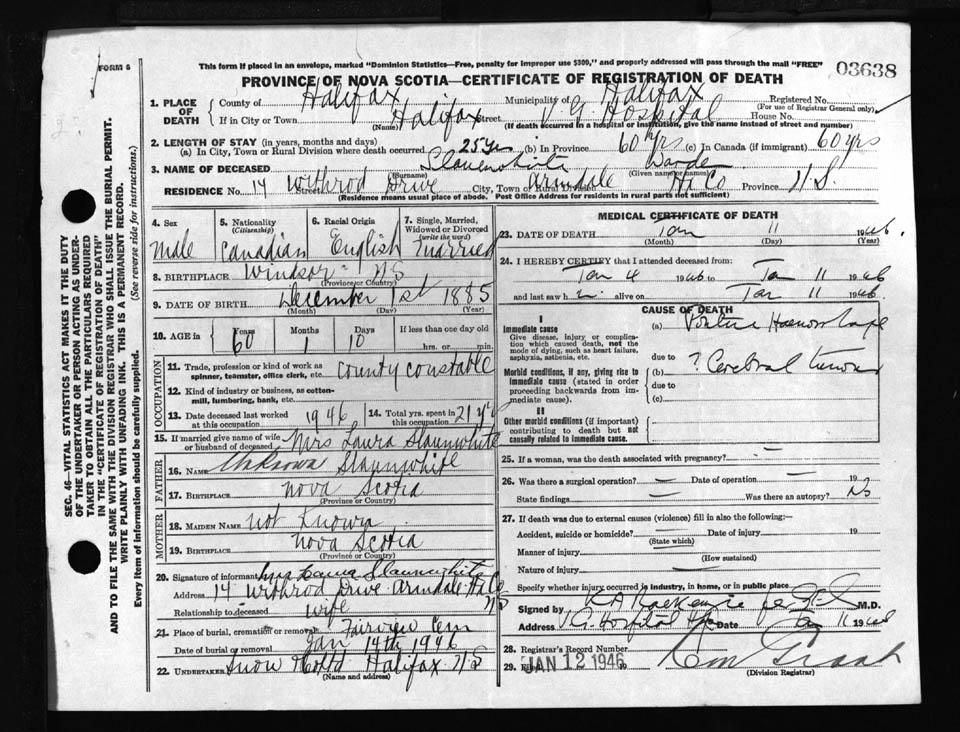 FORM 6
This form if placed in an envelope, marked "Dominion Statistics—Free, penalty for improper use $300," and properly addressed will pass through the mail "FREE"
PROVINCE OF NOVA SCOTIA—CERTIFICATE OF REGISTRATION OF DEATH
03638
1. PLACE OF DEATH County of Halifax Municipality of Halifax Registered No. (For use of Registrar General only)
If in City or Town Halifax (Name) Street V.G. Hospital House No.
(If death occurred in a hospital or institution, give the name instead of street and number)
2. LENGTH OF STAY (in years, months and days)
(a) In City, Town or Rural Division where death occurred 25 yrs (b) In Province 60 yrs (c) In Canada (if immigrant) 60 yrs
3. NAME OF DECEASED Slaunwhite (Surname) Warde (Given name or names)
RESIDENCE No. 14 Street Withrod Drive City, Town or Rural Division Armdale Hx Co Province N.S.
(Residence means usual place of abode. Post Office Address for residents in rural parts not sufficient)
4. Sex Male
5. Nationality (Citizenship) Canadian
6. Racial Origin English
7. Single, Married, Widowed or Divorced (write the word) Married
8. BIRTHPLACE Windsor NS
(Province or Country)
9. DATE OF BIRTH December 1st 1885
(Month) (Day) (Year)
10. AGE in Years 60 Months 1 Days 10 If less than one day old hrs. or min.
OCCUPATION
11. Trade, profession or kind of work as spinner, teamster, office clerk, etc. County constable
12. Kind of industry or business, as cotton-mill, lumbering, bank, etc.
13. Date deceased last worked at this occupation 1946 14. Total yrs. spent in this occupation 21 yrs
15. If married give name of wife or husband of deceased Mrs Laura Slaunwhite
FATHER
16. NAME Unknown Slaunwhite
17. BIRTHPLACE Nova Scotia
(Province or Country)
MOTHER
18. MAIDEN NAME Not Known
19. BIRTHPLACE Nova Scotia
(Province or Country)
20. Signature of informant Mrs Laura Slaunwhite
Address 14 Withrod Drive Armdale Hx Co NS
Relationship to deceased wife
21. Place of burial, cremation or removal Fairview Cem
Date of burial or removal Jan 14th 1946
22. UNDERTAKER Snow Co Ltd Halifax N S
(Name and address)
MEDICAL CERTIFICATE OF DEATH
23. DATE OF DEATH Jan 11 1946
(Month) (Day) (Year)
24. I HEREBY CERTIFY that I attended deceased from:
Jan 4 1946 to Jan 11 1946
and last saw h im alive on Jan 11 1946
CAUSE OF DEATH
I
Immediate cause
Give disease, injury or complication which caused death, not the mode of dying, such as heart failure, asphyxia, asthenia, etc.
(a) Pontine Haemorrhage
due to
Morbid conditions, if any, giving rise to immediate cause (stated in order proceeding backwards from immediate cause).
(b) ? Cerebral tumour
due to
(c)
II
Other morbid conditions (if important) contributing to death but not causally related to immediate cause.
25. If a woman, was the death associated with pregnancy?
26. Was there a surgical operation? — Date of operation — 19
State findings — Was there an autopsy? No
27. If death was due to external causes (violence) fill in also the following:—
Accident, suicide or homicide? (State which) Date of injury 19
Manner of injury (How sustained)
Nature of injury
Specify whether injury occurred in industry, in home, or in public place
Signed by K A MacKenzie M.D.
Address V.G. Hospital Hfx Date Jan 11 1946
28. Registrar's Record Number
29. JAN 12 1946
(Division Registrar)
SEC. 46—VITAL STATISTICS ACT MAKES IT THE DUTY OF THE UNDERTAKER OR PERSON ACTING AS UNDERTAKER TO OBTAIN ALL THE PARTICULARS REQUIRED IN THE "CERTIFICATE OF REGISTRATION OF DEATH" AND TO FILE THE SAME WITH THE DIVISION REGISTRAR WHO SHALL ISSUE THE BURIAL PERMIT.
WRITE PLAINLY WITH UNFADING INK. THIS IS A PERMANENT RECORD.
Every item of information should be carefully supplied. (See reverse side for instructions.)